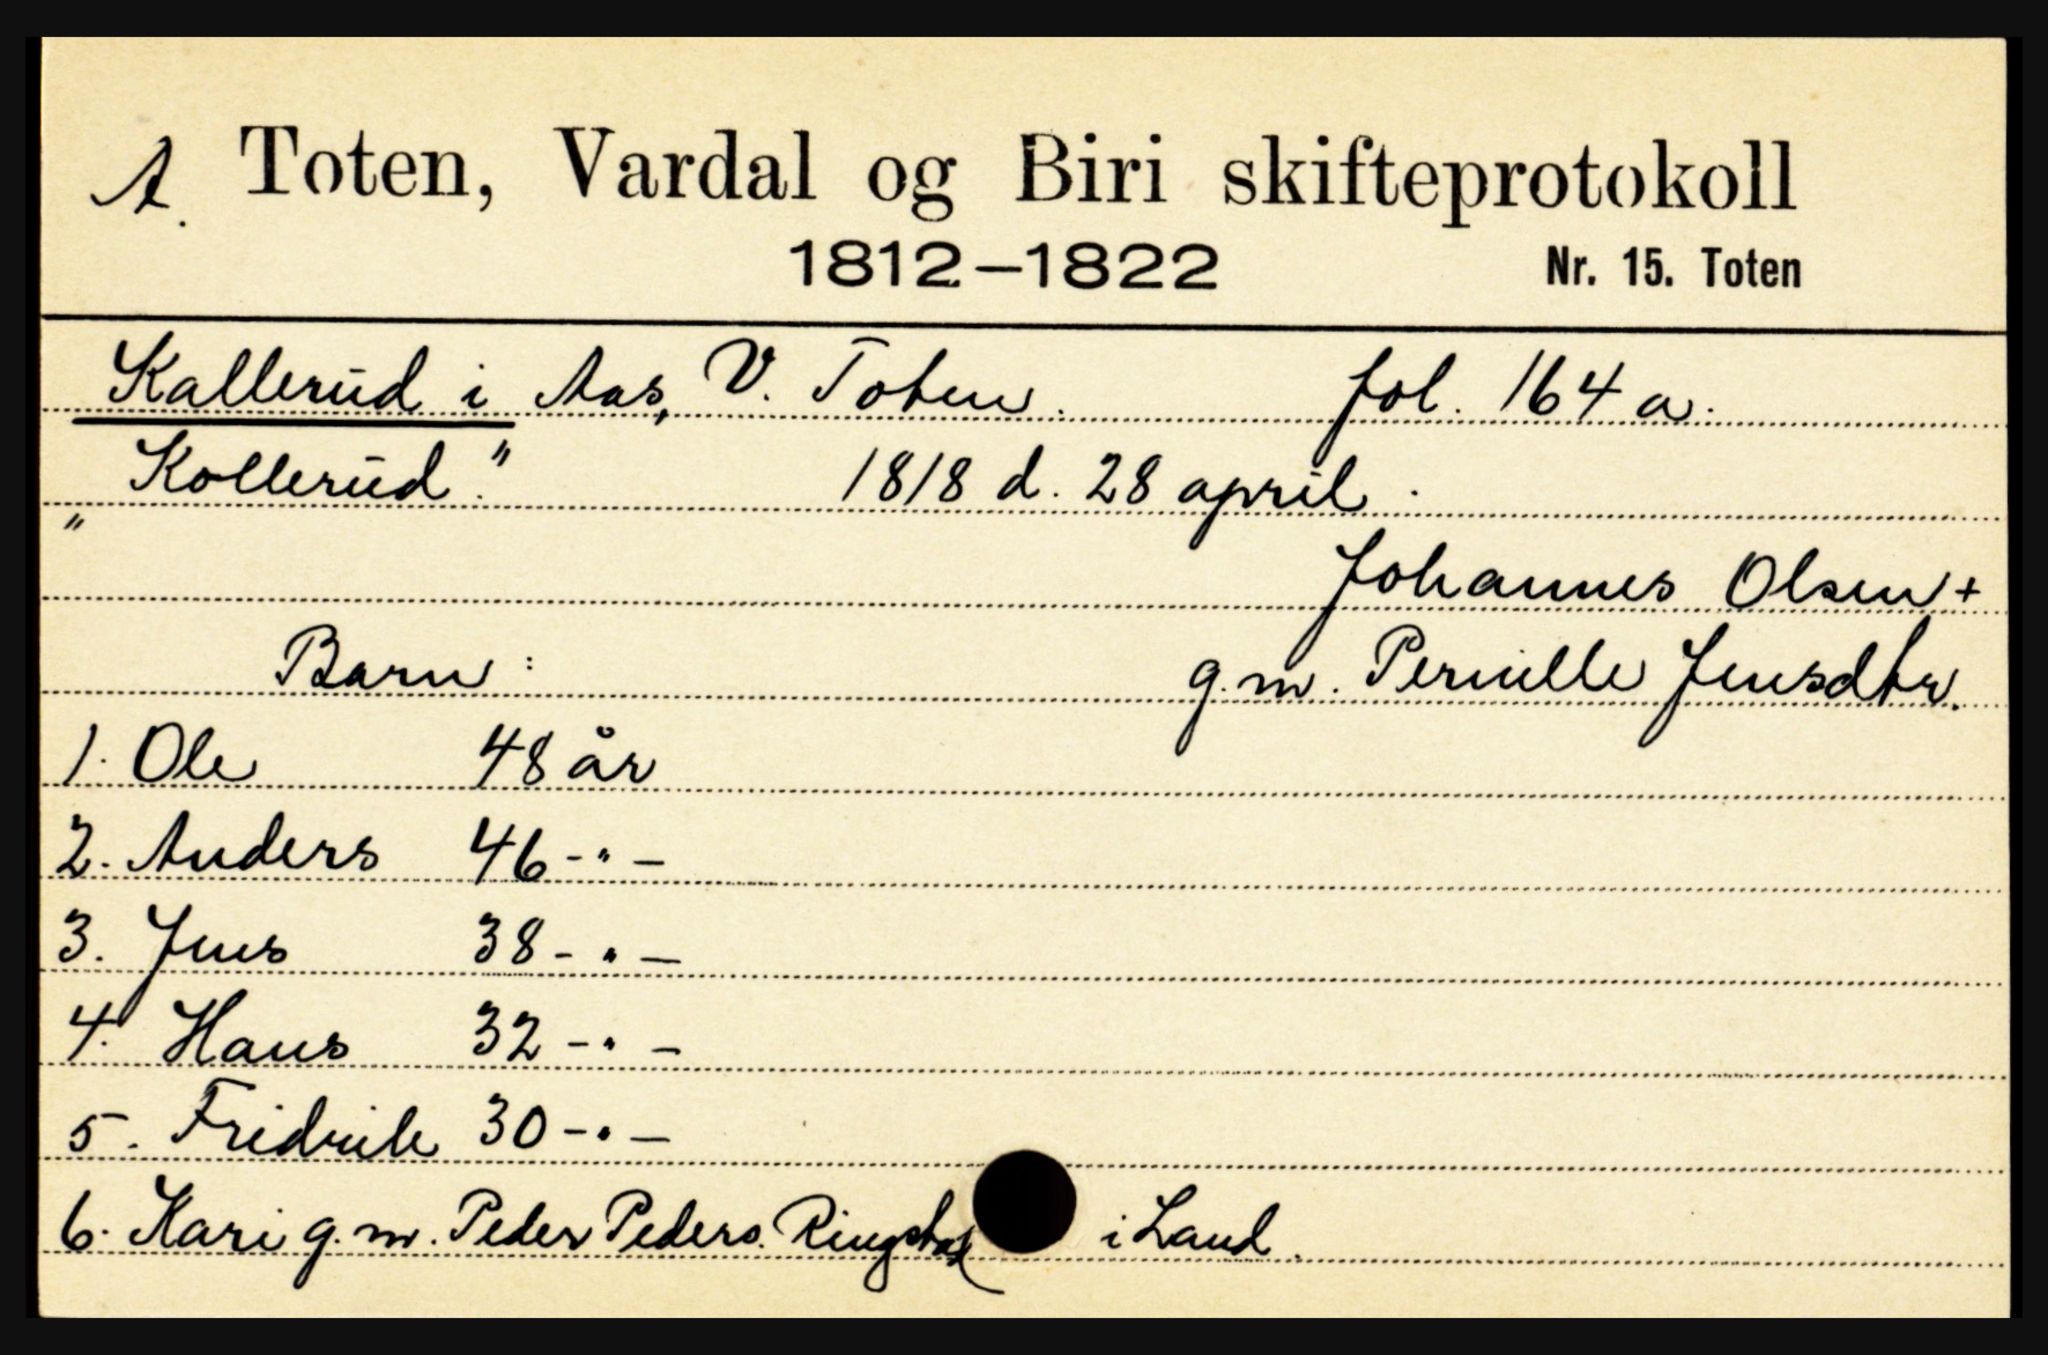 A. Toten, Vardal og Biri skifteprotokoll
1812–1822 Nr. 15. Toten
Kallerud i Aas, V. Toten. fol. 164 a.
"Kollerud." 1818 d. 28 april.
Johannes Olsen +
Barn: g.m. Pernille Jensdtr.
1. Ole 48 år
2. Anders 46 -"-
3. Jens 38 -"-
4. Hans 32 -"-
5. Fridrik 30 -"-
6. Kari g.m. Peder Peders. i Land.